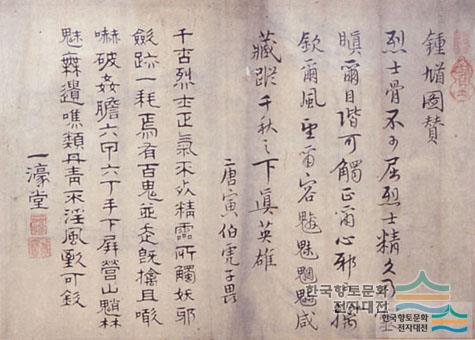 鍾馗圖贊
烈士骨不可屈烈士精久
瞋爾目階可觸正爾心邪
欽爾風 爾容魑魅魍魎咸
藏蹤千秋之下眞英雄
唐寅伯虎子畏
千古烈士正氣不 精靈所觸妖邪
斂跡一耗焉有百鬼並走旣擒且噉
嚇破姦膽六甲六丁手下屏營山魈林
魅無遺噍類丹靑不 風 可欽
一濠堂
한국향토문화
전자대전